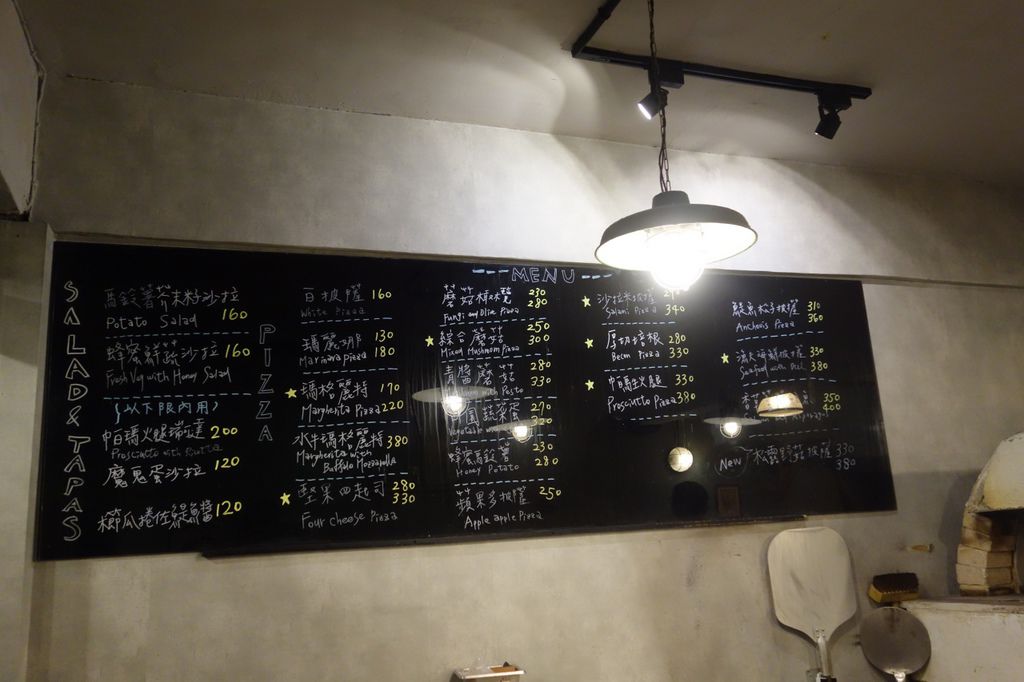 MENU
SALAD & TAPAS
馬鈴薯芥末籽沙拉
Potato Salad 160
蜂蜜鮮蔬沙拉 160
Fresh Veg with Honey Salad
(以下限內用)
帕瑪火腿瑞可達 200
Prosciutto with Ricotta
魔鬼蛋沙拉 120
櫛瓜捲佐鯷魚醬 120
PIZZA
白披薩 160
White Pizza
瑪麗娜那 130
Marinara pizza 180
瑪格麗特 170
Margherita Pizza 220
水牛瑪格麗特 380
Margherita with
Buffalo Mozzarella
堅果四起司 280
330
Four cheese Pizza
蘑菇橄欖 230
280
Fungi and Olive Pizza
綜合蘑菇 250
300
Mixed Mushroom Pizza
青醬蘑菇 280
330
with Pesto
園蔬菜蛋 270
320
蜂蜜馬鈴薯 230
Honey Potato 280
蘋果多披薩 250
Apple apple Pizza
沙拉米披薩
Salami Pizza 340
厚切培根 280
Bacon Pizza 330
帕瑪火腿 330
Prosciutto Pizza 380
鯷魚松子披薩 310
360
Anchovis Pizza
330
Seafood with 380
350
400
New
松露野菇披薩 330
380